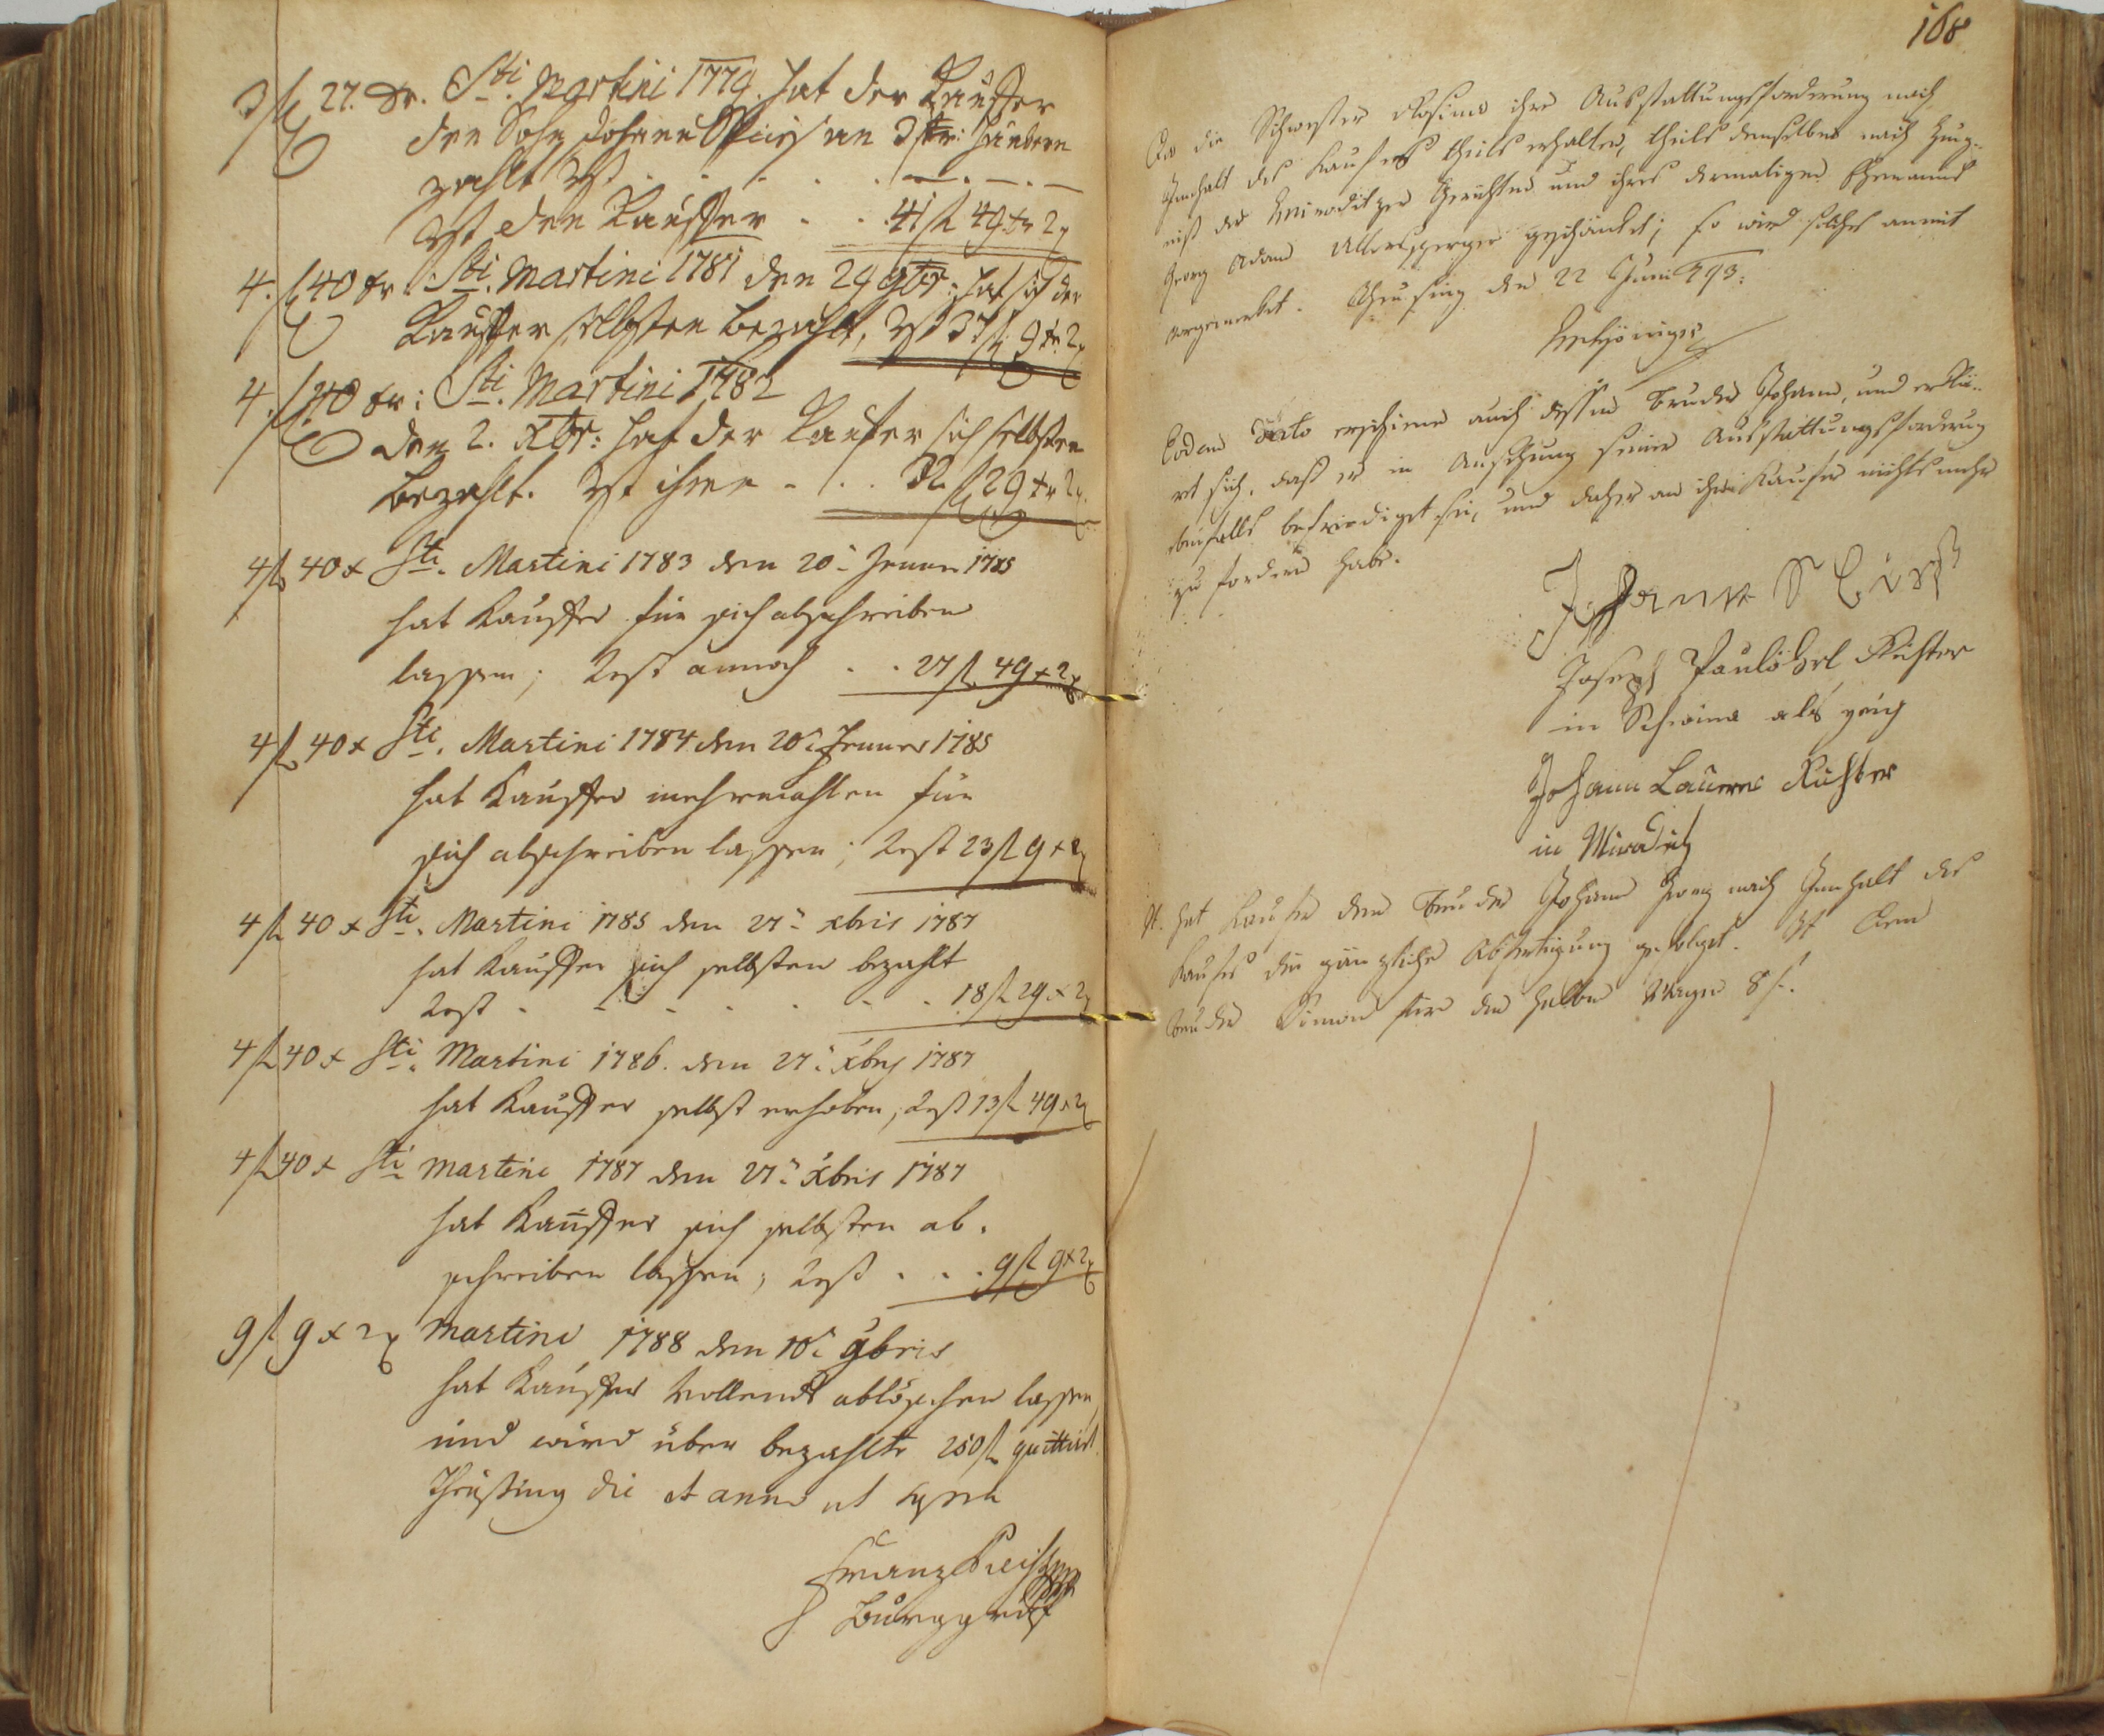 3 fl 27. xr. Sti. Martini 1779. hat der Kauffer
den Sohn Johann
zahlt Rst . . . . .
Rst den Kauffer . . 41 fl 49 xr 2
4. fl 40 xr. Sti. Martini 1781 den 29 9br: hat sich der
Kauffer selbsten bezahlt, Rst 37 fl 9 xr 2
4. fl 40 xr: Sti. Martini 1782
den 2. Xbr: hat der Kaufer sich selbsten
bezahlt. Rst ihme - . . 32 fl 29 xr 2
4 fl 40 x Sti. Martini 1783 den 20n Jenner 1785
hat Kauffer für sich abschreiben
lassen; Rest annoch . . 27 fl 49 x 2
4 fl 40 x Sti. Martini 1784 den 20n Jenner 1785
hat Kauffer mehrmahlen für
sich abschreiben lassen; Rest 23 fl 9 x 2
4 fl 40 x Sti. Martini 1785 den 27n xbris 1787
hat Kauffer sich selbsten bezahlt
Rest - - - - - - - 18 fl 29 x 2
4 fl 40 x Sti. Martini 1786. den 27n Xbris 1787
hat Kauffer selbst erhoben, Rest 13 fl 49 x 2
4 fl 40 x Sti Martini 1787 den 27n Xbris 1787
hat Kauffer sich selbsten ab-
schreiben lassen; Rest . . . 9 fl 9 x 2
9 fl 9 x 2 Martini 1788 den 10n 9bris
hat Kauffer vollends ablöschen lassen,
und wird über bezahlte 250 fl quittirt.
Theusing die et anno ut supra
Franz
Burggraf
168
Da die Schwester Rosina ihre Ausstattungsforderung nach
Innhalt des Kaufes theils erhalten, theils denselben nach Zeug-
niß der Miroditzer Gerichten und ihres dermaligen Ehemanns
Georg Adam geschänket; so wird solches anmit
vorgemerket. Theusing den 22 Juni 793.
Eodem dato erschiene auch dessen Bruder Johann, und erklä-
ret sich, daß er in Ansehung seiner Ausstattungsforderung
ebenfalls befriediget sei, und daher an ihn Kaufer nichts mehr
zu fordern habe.
Johann
Joseph Richter
in als zeig
Johann Richter
in Miroditz
N. hat Kaufer dem Bruder Johann Georg nach Innhalt des
Kaufes die gänzliche Abfertigung gefolget. Ist dem
Bruder Simon für den halben Wagen 8 f.